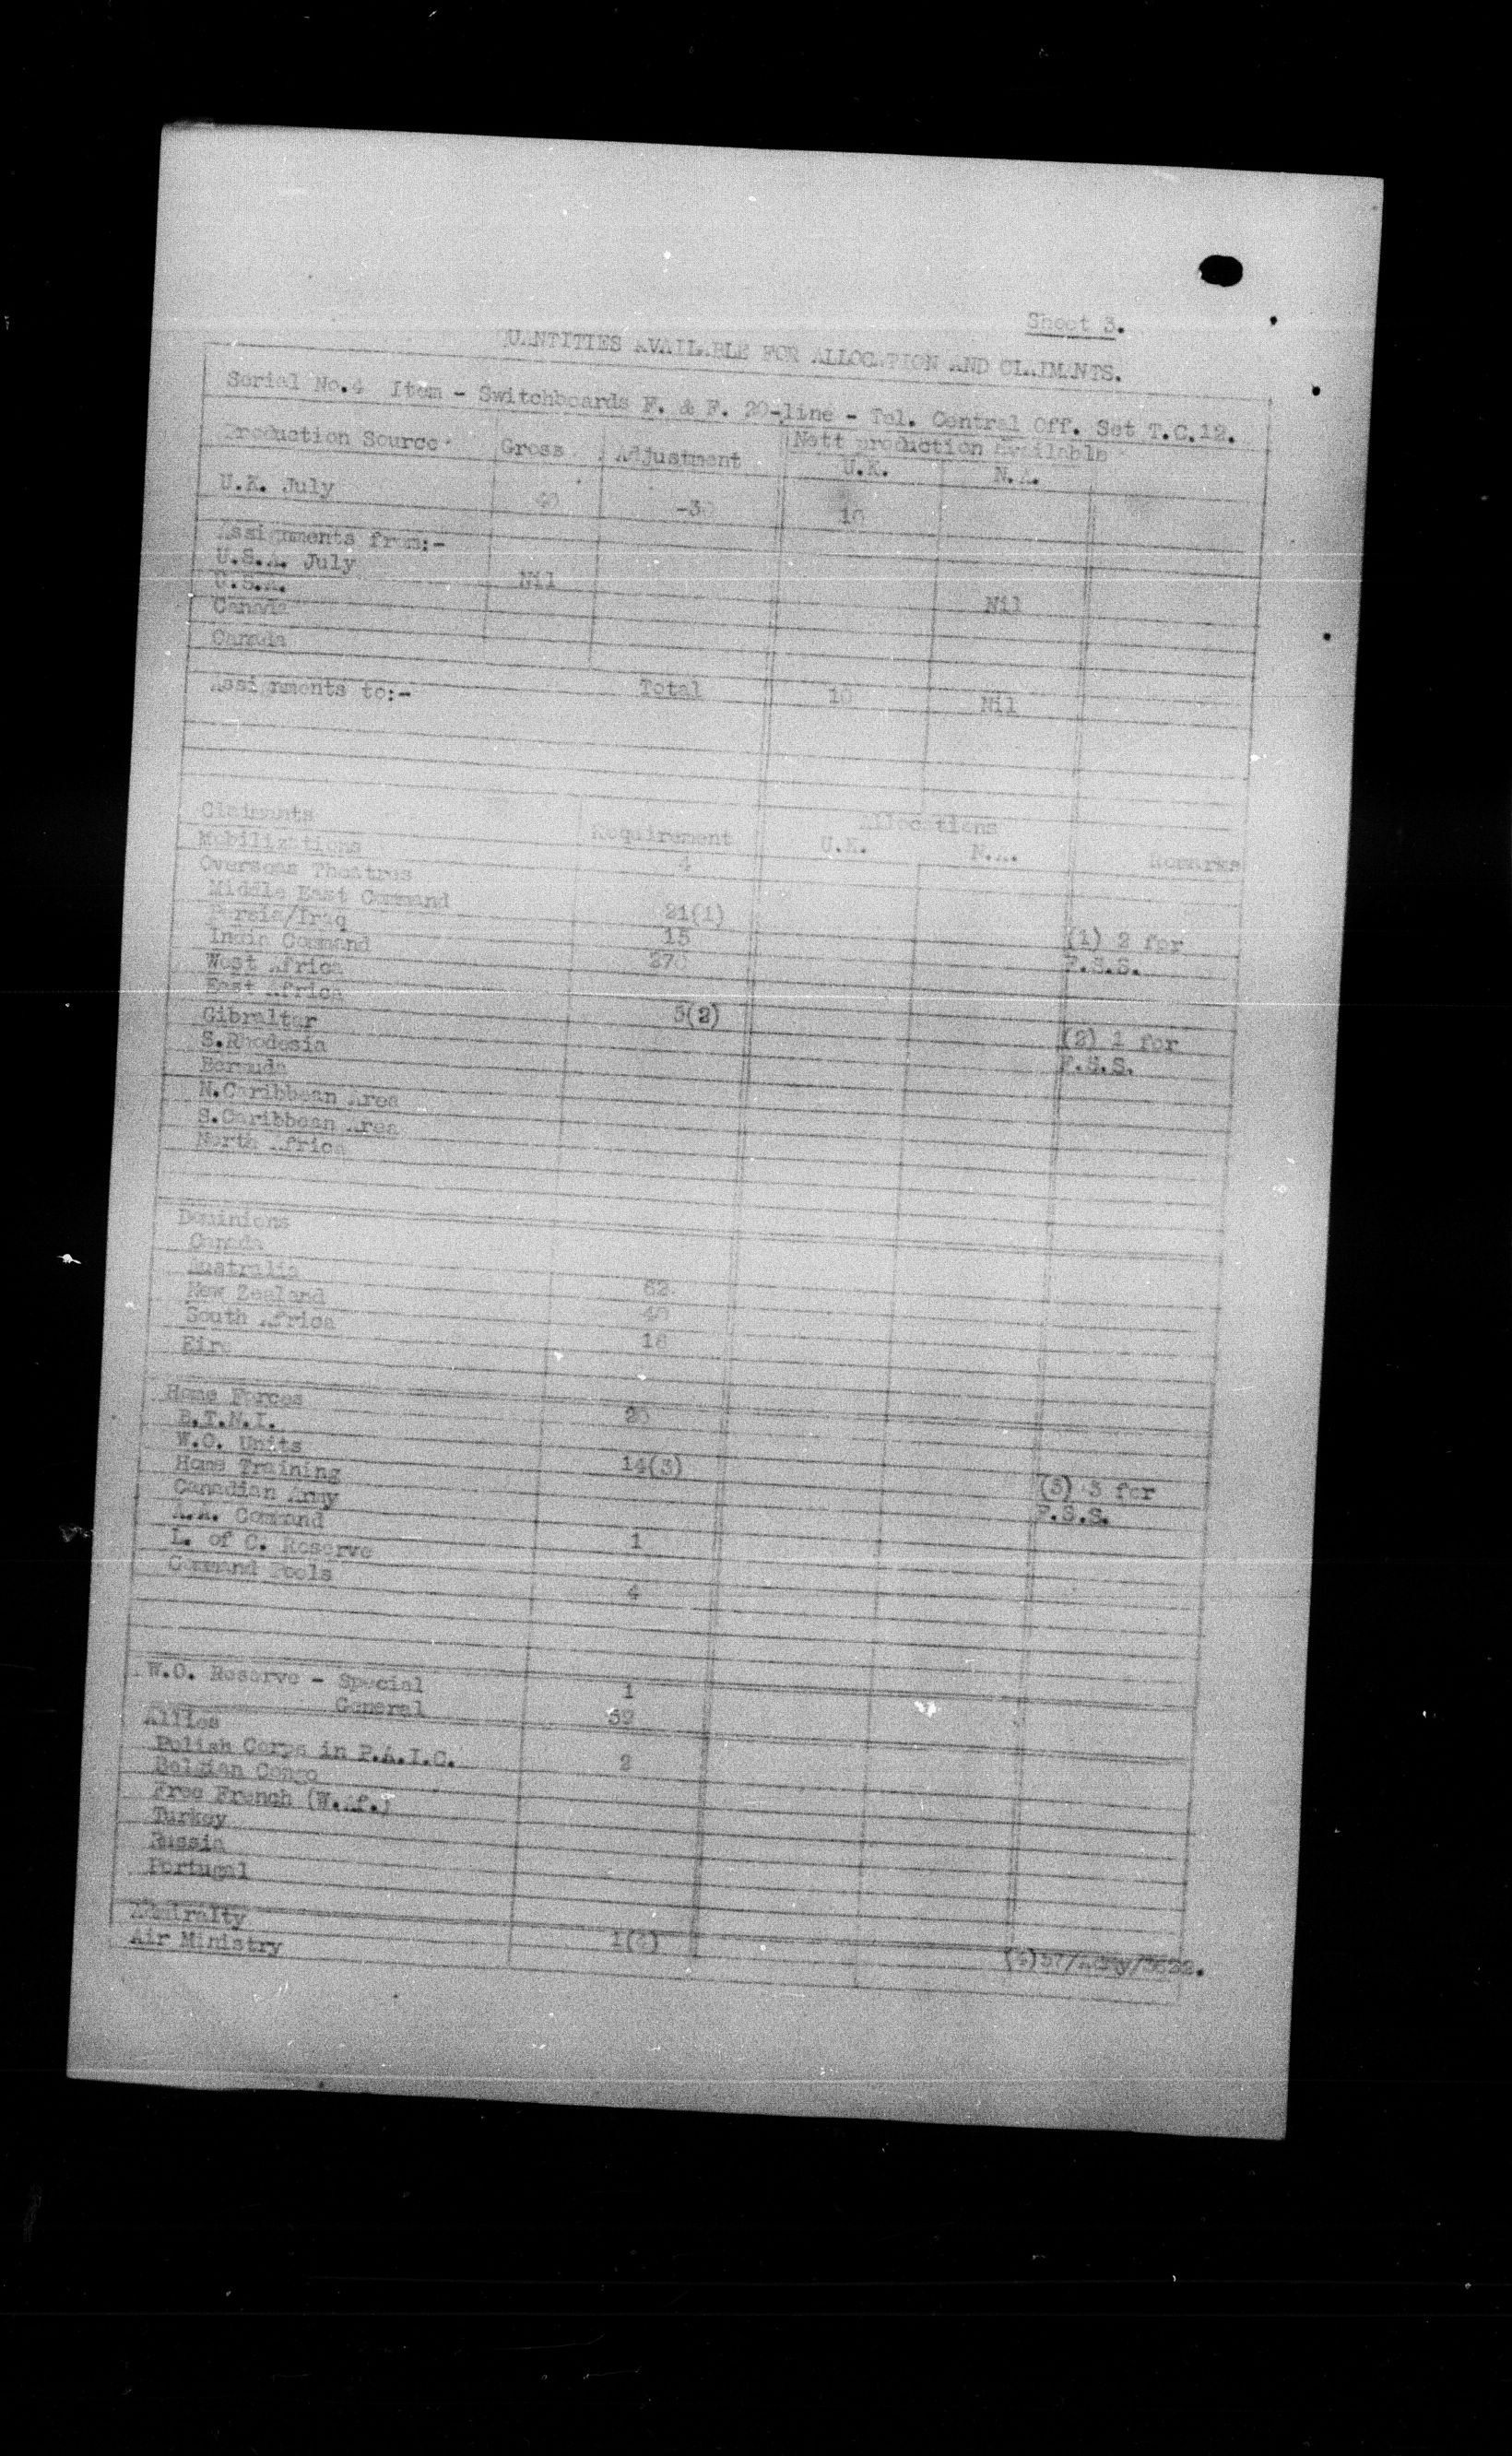 Sheet 3.
QUANTITIES AVAILABLE FOR ALLOCATION AND CLAIMANTS.
Serial No.4 Item - Switchboards F. & F. 20-line - Tel. Central Off. Set T.C.12.
Production Source Gross Adjustment Nett production Available
U.K. N.A.
U.K. July 40 -30 10
Assignments from:-
U.S.A. July Nil Nil
U.S.A.
Canada
Canada
Total 10 Nil
Assignments to:-
Claimants Requirement Allocations Remarks
U.K. N.A.
Mobilizations 4
Overseas Theatres
Middle East Command 21(1) (1) 2 for
Persia/Iraq 15 F.S.S.
India Command 270
West Africa
East Africa 5(2) (2) 1 for
Gibraltar F.S.S.
S.Rhodesia
Bermuda
N.Caribbean Area
S.Caribbean Area
North Africa
Dominions
Canada
Australia 62
New Zealand 40
South Africa 18
Eire
Home Forces 20
B.T.N.I.
W.O. Units 14(3) (3) 3 for
Home Training F.S.S.
Canadian Army
A.A. Command 1
L. of C. Reserve
Command Pools 4
W.O. Reserve - Special 1
General 52
Allies
Polish Corps in P.A.I.C. 2
Belgian Congo
Free French (W.Af.)
Turkey
Russia
Portugal
Admiralty 1(4) (4)57/Army/3622.
Air Ministry